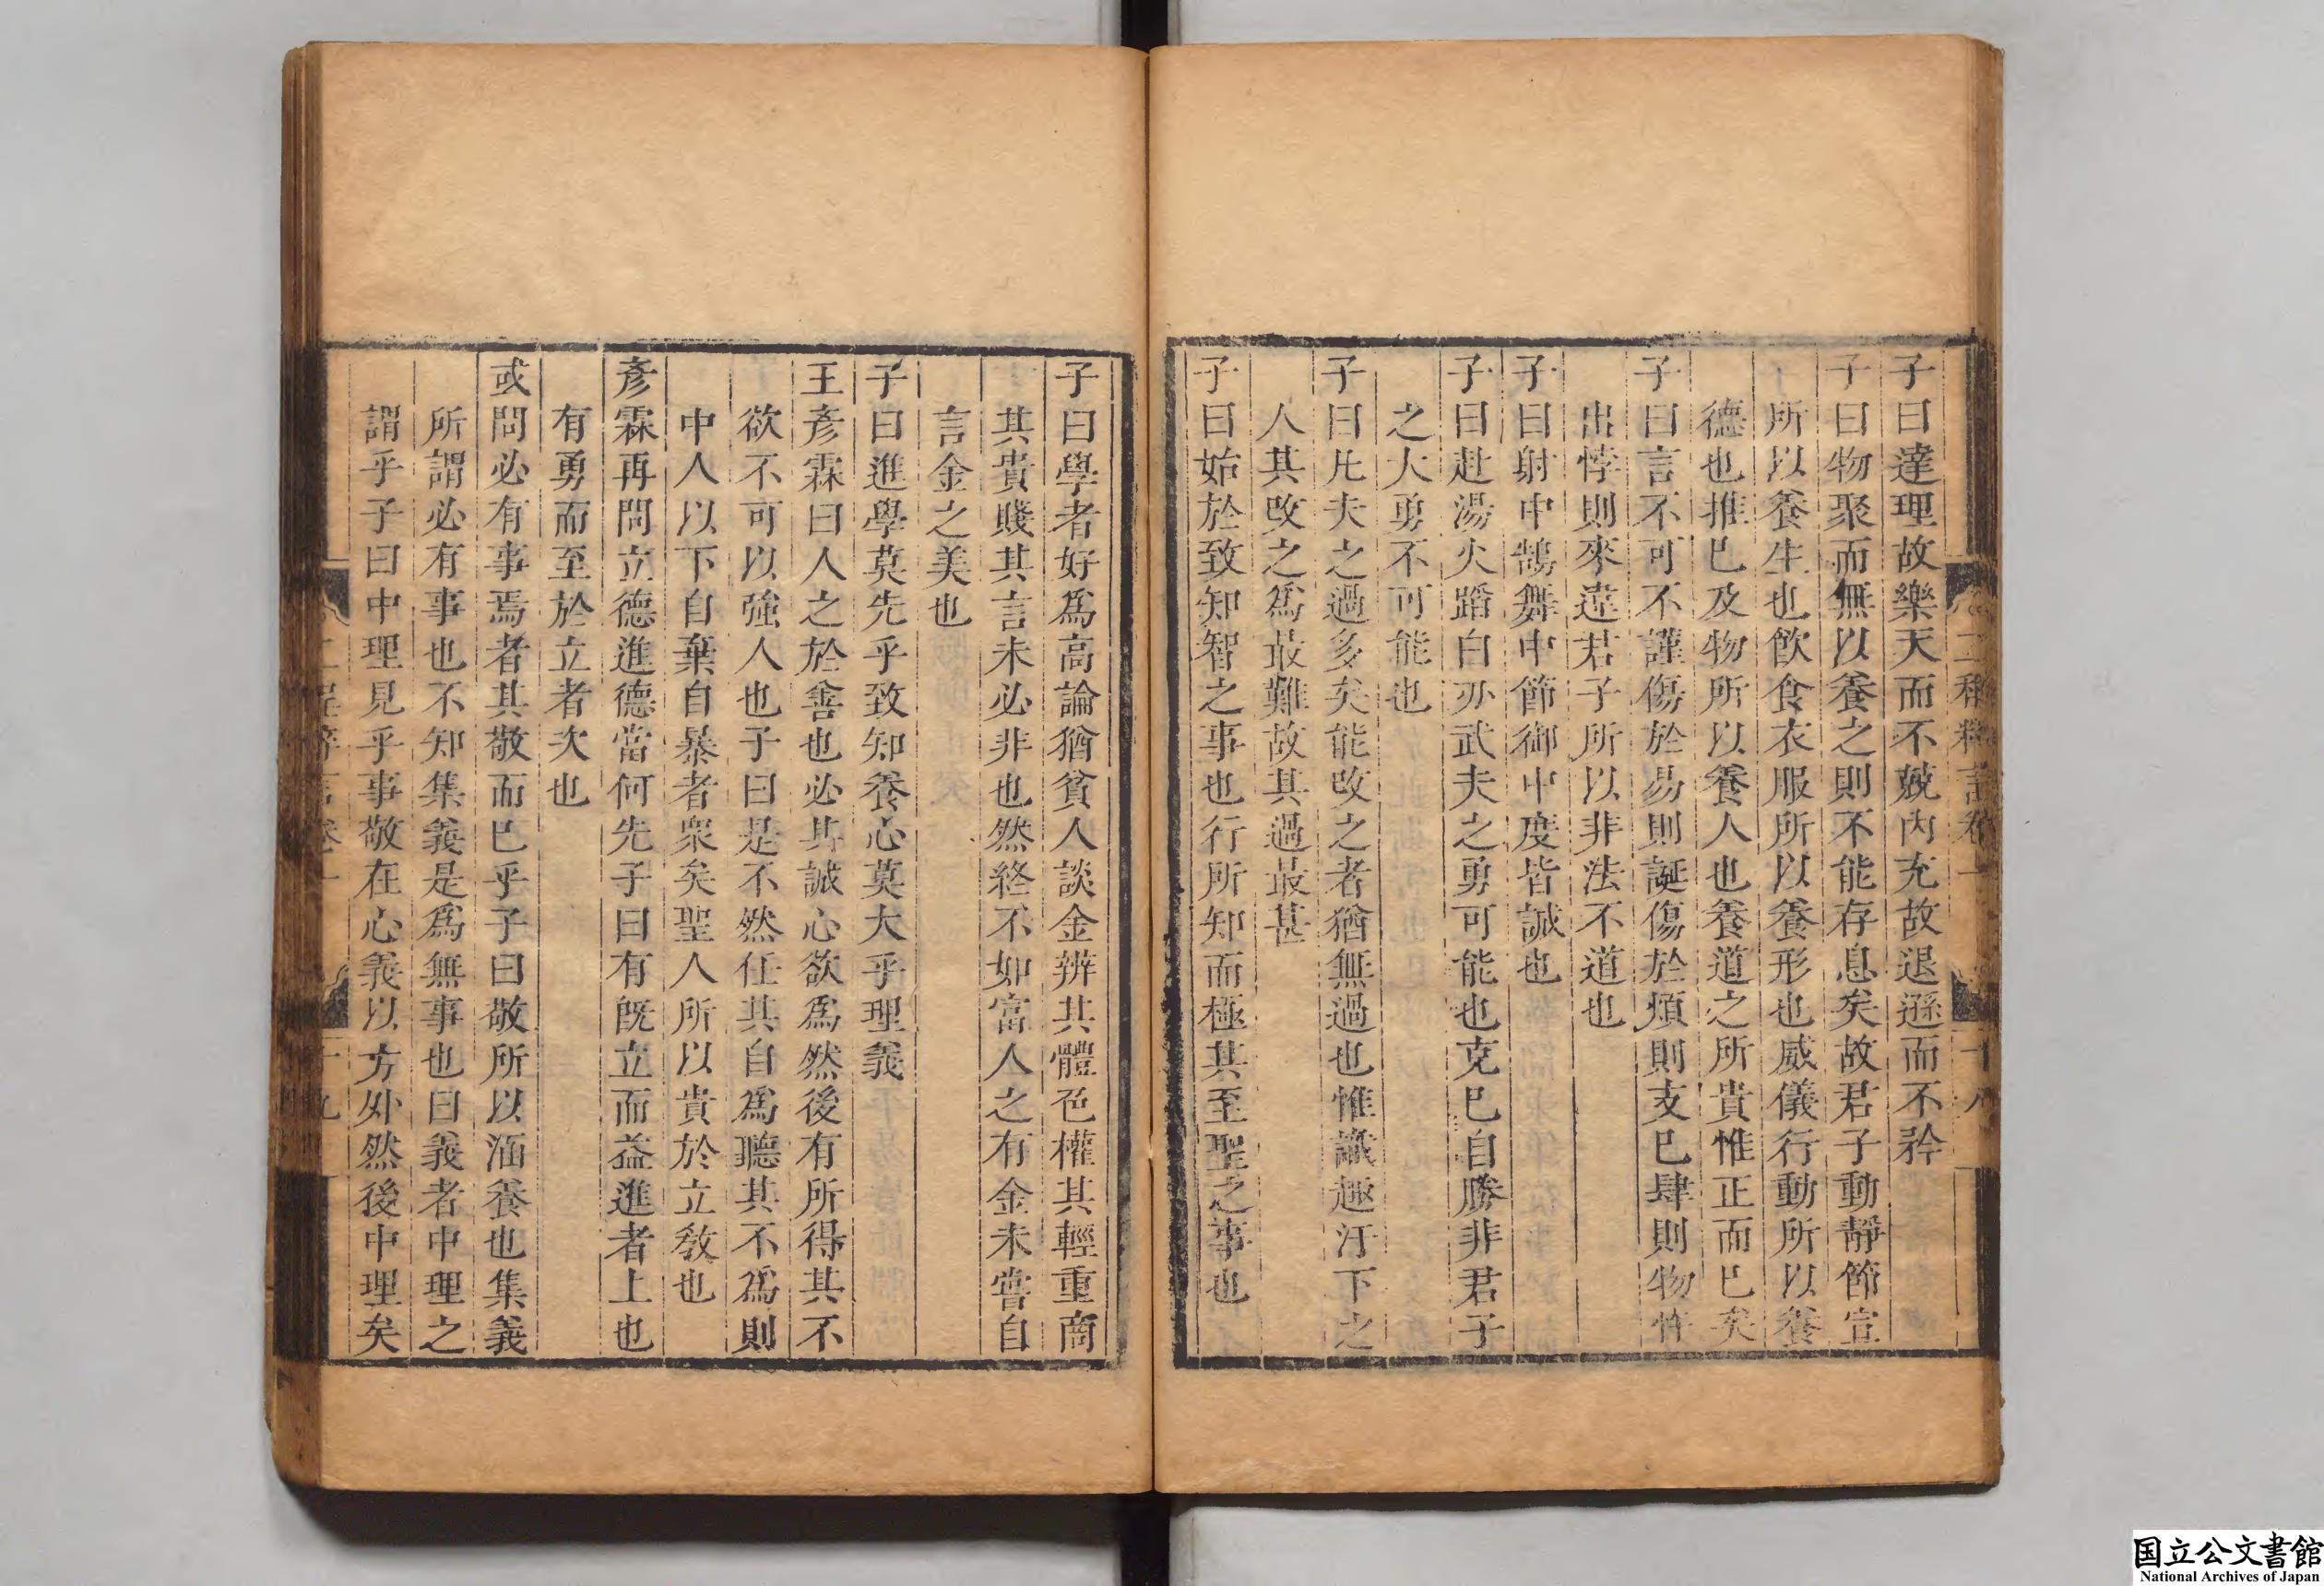 子曰達理故樂天而不兢内充故退遜而不矜
子曰物聚而無以養之則不能存息矣故君子動靜節宣
所以養生也飲食衣服所以養形也威儀行動所以養
德也推已及物所以養人也養道之所貴惟正而已矣
子曰言不可不謹傷於易則誕傷於煩則支已肆則物忤
出悖則來違君子所以非法不道也
子曰射中鵠舞中節御中度皆誠也
子曰赴湯火蹈白刃武夫之勇可能也克已自勝非君子
之大勇不可能也
子曰凡夫之過多矣能改之者猶無過也惟識趣汙下之
人其改之爲最難故其過最甚
子曰始於致知智之事也行所知而極其至聖之事也
子曰學者好爲高論猶貧人談金辨其體色權其輕重商
其貴賤其言未必非也然終不如富人之有金未嘗自
言金之美也
子曰進學莫先乎致知養心莫大乎理義
王彥霖曰人之於善也必其誠心欲爲然後有所得其不
欲不可以強人也子曰是不然任其自爲聽其不爲則
中人以下自棄自暴者衆矣聖人所以貴於立敎也
彥霖再問立德進德當何先子曰有旣立而益進者上也
有勇而至於立者次也
或問必有事焉者其敬而已乎子曰敬所以涵養也集義
所謂必有事也不知集義是爲無事也曰義者中理之
謂乎子曰中理見乎事敬在心義以方外然後中理矣
二程粹言卷一
十八
二程粹言卷一
十九
国立公文書館
National Archives of Japan